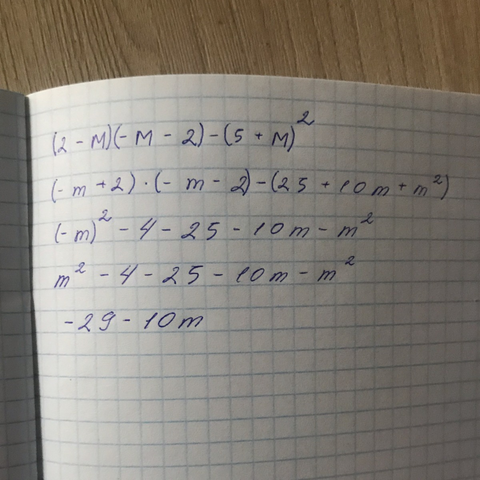 (2 - M)(-M - 2) - (5 + M)²
(-m + 2) · (-m - 2) - (25 + 10m + m²)
(-m)² - 4 - 25 - 10m - m²
m² - 4 - 25 - 10m - m²
-29 - 10m